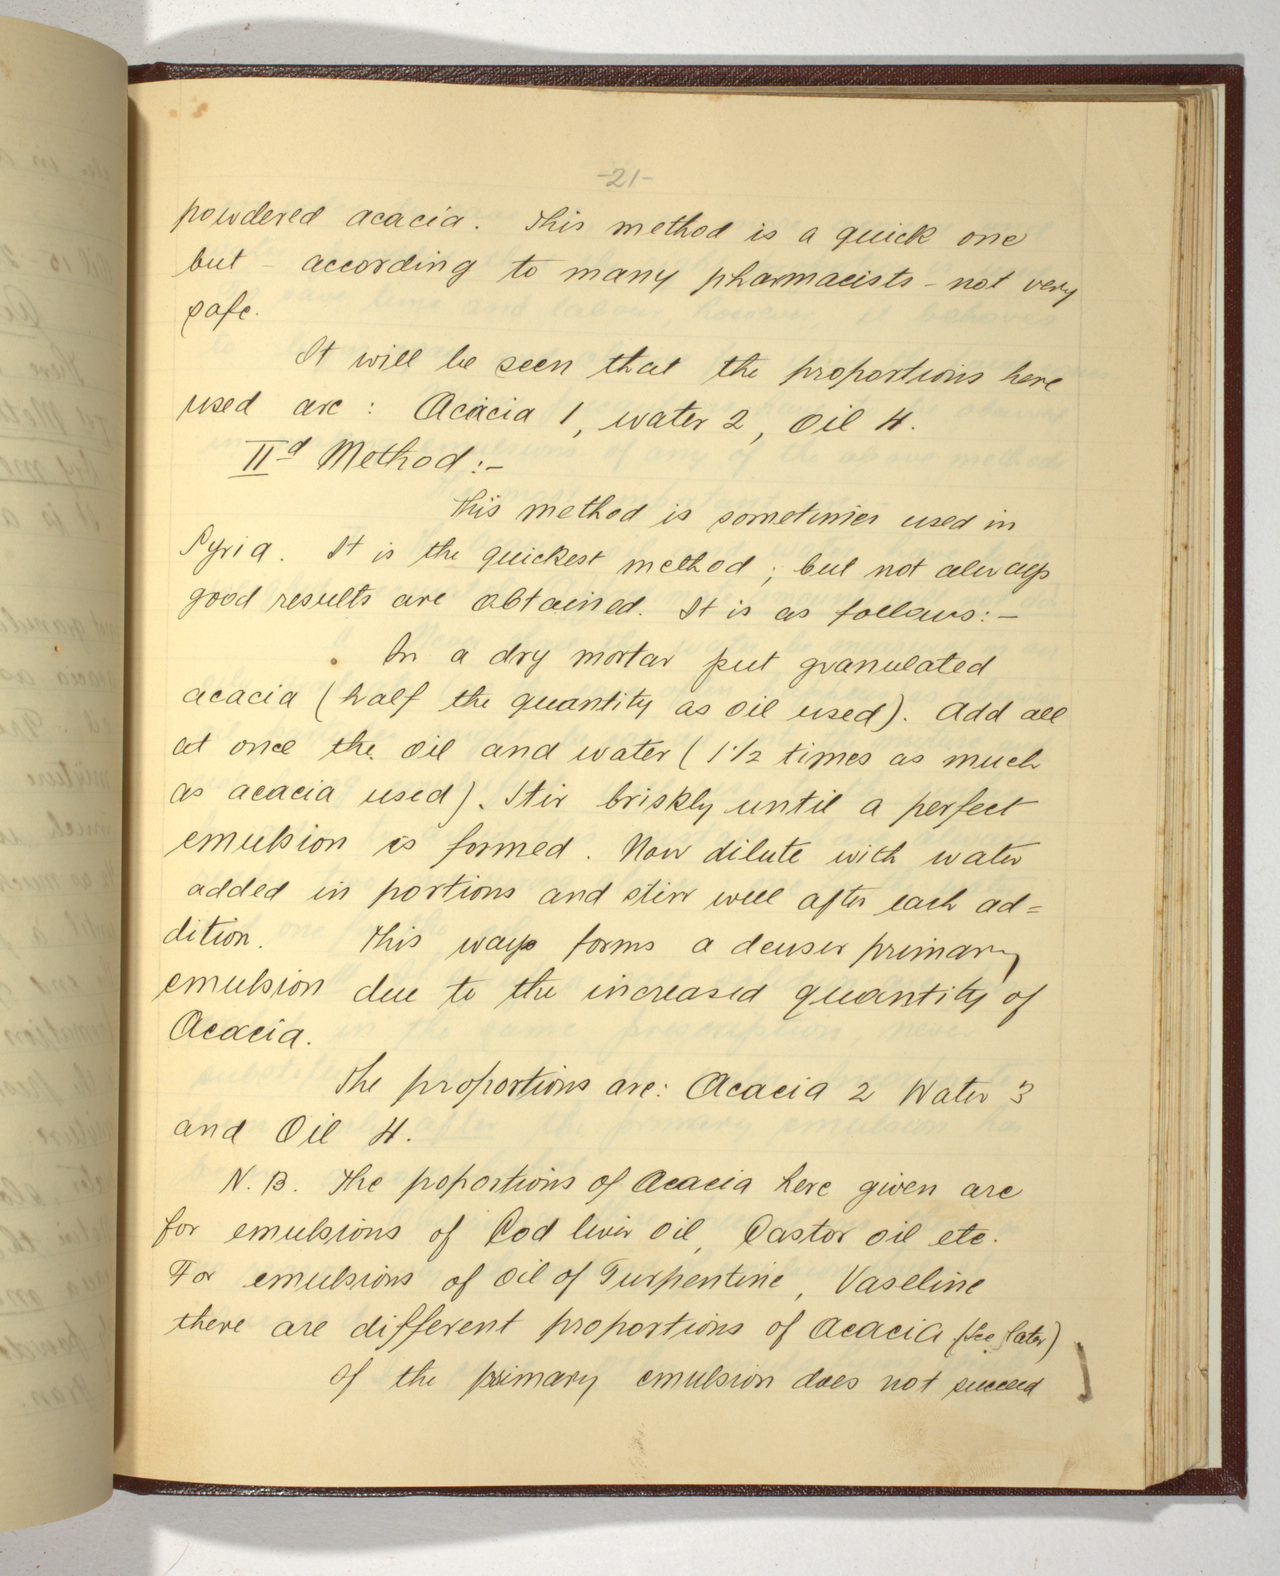 -21-
powdered acacia. This method is a quick one
but - according to many pharmacists - not very
safe.
It will be seen that the proportions here
used are : Acacia 1, water 2, Oil 4.
IId Method :-
This method is sometimes used in
Syria. It is the quickest method ; but not always
good results are obtained. It is as follows:-
In a dry mortar put granulated
acacia (half the quantity as oil used). Add all
at once the oil and water ( 1 1/2 times as much
as acacia used). Stir briskly until a perfect
emulsion is formed. Now dilute with water
added in portions and stirr well after each ad=
dition. This way forms a denser primary
emulsion due to the increased quantity of
Acacia.
The proportions are: Acacia 2 Water 3
and Oil 4.
N. B. The poportions of Acacia here given are
for emulsions of Cod liver oil, Castor oil etc.
For emulsions of oil of Turpentine, Vaseline
there are different proportions of acacia (See later)
If the primary emulsion does not succeed